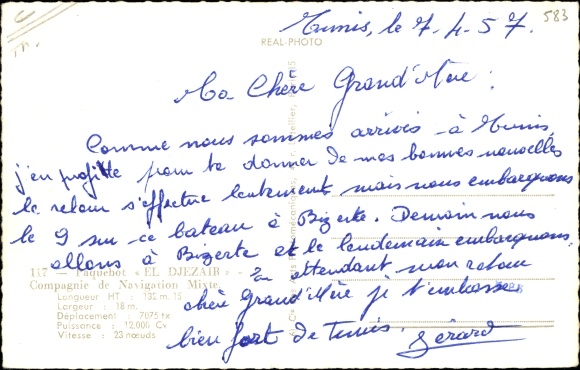 583
Tunis, le 7.4.57.
REAL-PHOTO
Ma Chère Grand'Mère :
Comme nous sommes arrivés à Tunis,
j'en profite pour te donner de mes bonnes nouvelles
le retour s'effectue lentement mais nous embarquons
le 9 sur ce bateau à Bizerte. Demain nous
allons à Bizerte et le lendemain embarquons,
117 — Paquebot « EL DJEZAIR » -
En attendant mon retour
Compagnie de Navigation Mixte
Longueur HT : 132 m. 15
chère Grand'Mère je t'embrasse
Largeur : 18 m.
Déplacement : 7075 tx
Puissance : 12.000 Cv
bien fort de Tunis.
Vitesse : 23 nœuds
Gérard